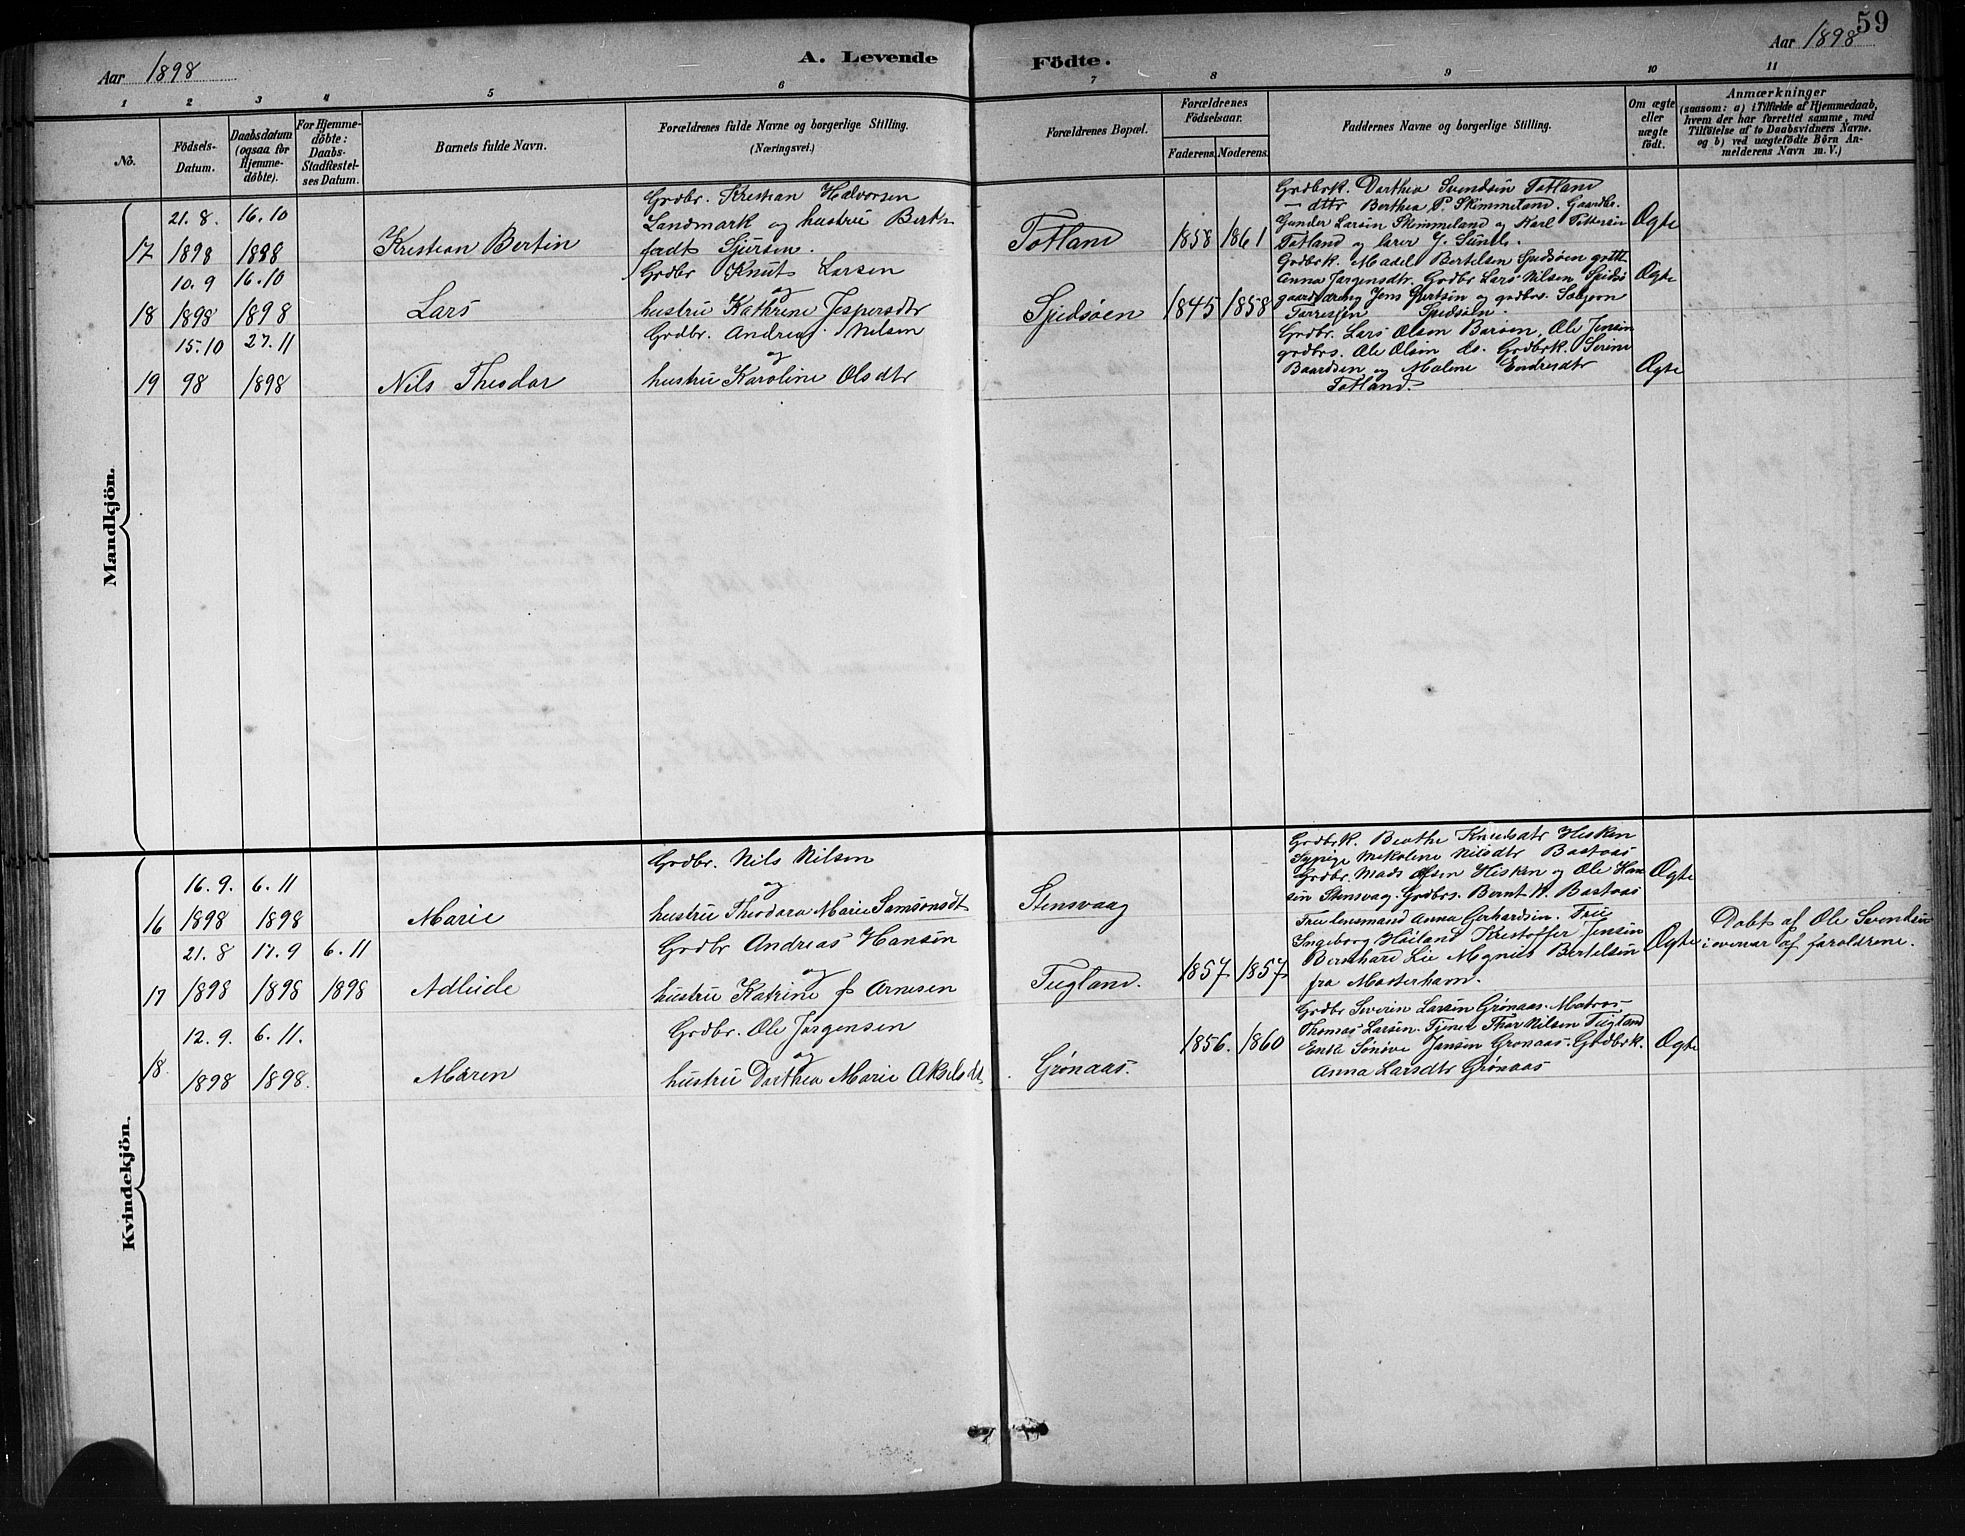 59
Aar 1898
A. Levende Födte.
Aar 1898
1 2 3 4 5 6 7 8 9 10 11
No.
Födsels-Datum.
Daabsdatum (ogsaa for Hjemme-döbte).
For Hjemme-döbte: Daabs-Stadfæstel-ses Datum.
Barnets fulde Navn.
Forældrenes fulde Navne og borgerlige Stilling.
(Næringsvei.)
Forældrenes Bopæl.
Forældrenes Födselsaar.
Faderens. Moderens.
Faddernes Navne og borgerlige Stilling.
Om ægte eller uægte födt.
Anmærkninger
(saasom: a) i Tilfælde af Hjemmedaab, hvem der har forrettet samme, med Tilföielse af to Daabsvidners Navne. og b) ved uægtefödte Börn An-melderens Navn m. V.)
Mandkjön.
17
21.8. 1898
16.10 1898
Kristian Bertin
Grdbr. Kristian Halvorsen
Landmark og hustru Berth
født Sjursen.
Totland
1858 1861
Grdbrk. Dorthea Svendsen Totland
— dttr Berthea P. Skimmeland. Gaardbr.
Gunder Larsen Skimmeland og Karl Pettersen
Totland og lærer J. Sund.
Ægte
18
10.9 1898
16.10 1898
Lars
Grdbr Knut Larsen
og
hustru Kathrine Jespersdtr
Spidsøen
1845 1858
Grdbrk. Madel Bertelsen Spidsøen
Anna Jørgensdtr. Grdbr Lars Nilsen Spidsø
Jens Gertsen og grdbrs. Torresen Spidsøen.
Ægte
19
15.10 98
27.11 1898
Nils Theodor
Grdbr. Andreas Nilsen
og
hustru Karoline Olsdtr
Grdbr. Lars Olsen Barøen, Ole Jensen
grdbrs. Ole Olsen do. Grdbrk. Serine
Baardsen og Malene Endresdtr
Totland.
Ægte
Kvindekjön.
16
16.9. 1898
6.11 1898
Marie
Grdbr. Nils Nilsen
og
hustru Theodora Marie Samsonsdt
Stensvaag
Grdbrk. Beathe Knudsdtr Hisken
Nilsdtr Bastaas
Grdbr. Mads Olsen Hisken og Ole Han
sen Stensvag. Grdbrs. Bernt N. Bastaas
Ægte
17
21.8 1898
17.9 1898
6.11 1898
Adleide
Grdbr Andreas Hansen
og
hustru Katrine f. Arnesen
Tugland.
1857 1857
Fru lensmand Anna Gerhardsen. Fru
Ingeborg Høiland Kristoffer Jensen
Bernhard Lie Magnus Bertelsen
fra Mosterhamn.
Ægte
Døbt af Ole Svendsen
i overvær af forældrene.
18
12.9. 1898
6.11. 1898.
Maren
Grdbr. Ole Jørgensen
og
hustru Dorthea Marie Akselsdt
Grønaas.
1856. 1860
Grdbr Severin Larsen Grønaas. Matros
Thomas Larsen. Tjener Thor Nilsen Tugland
Enke Sønove Jansen Grønaas. Grdbrk.
Anna Larsdtr Grønaas
Ægte